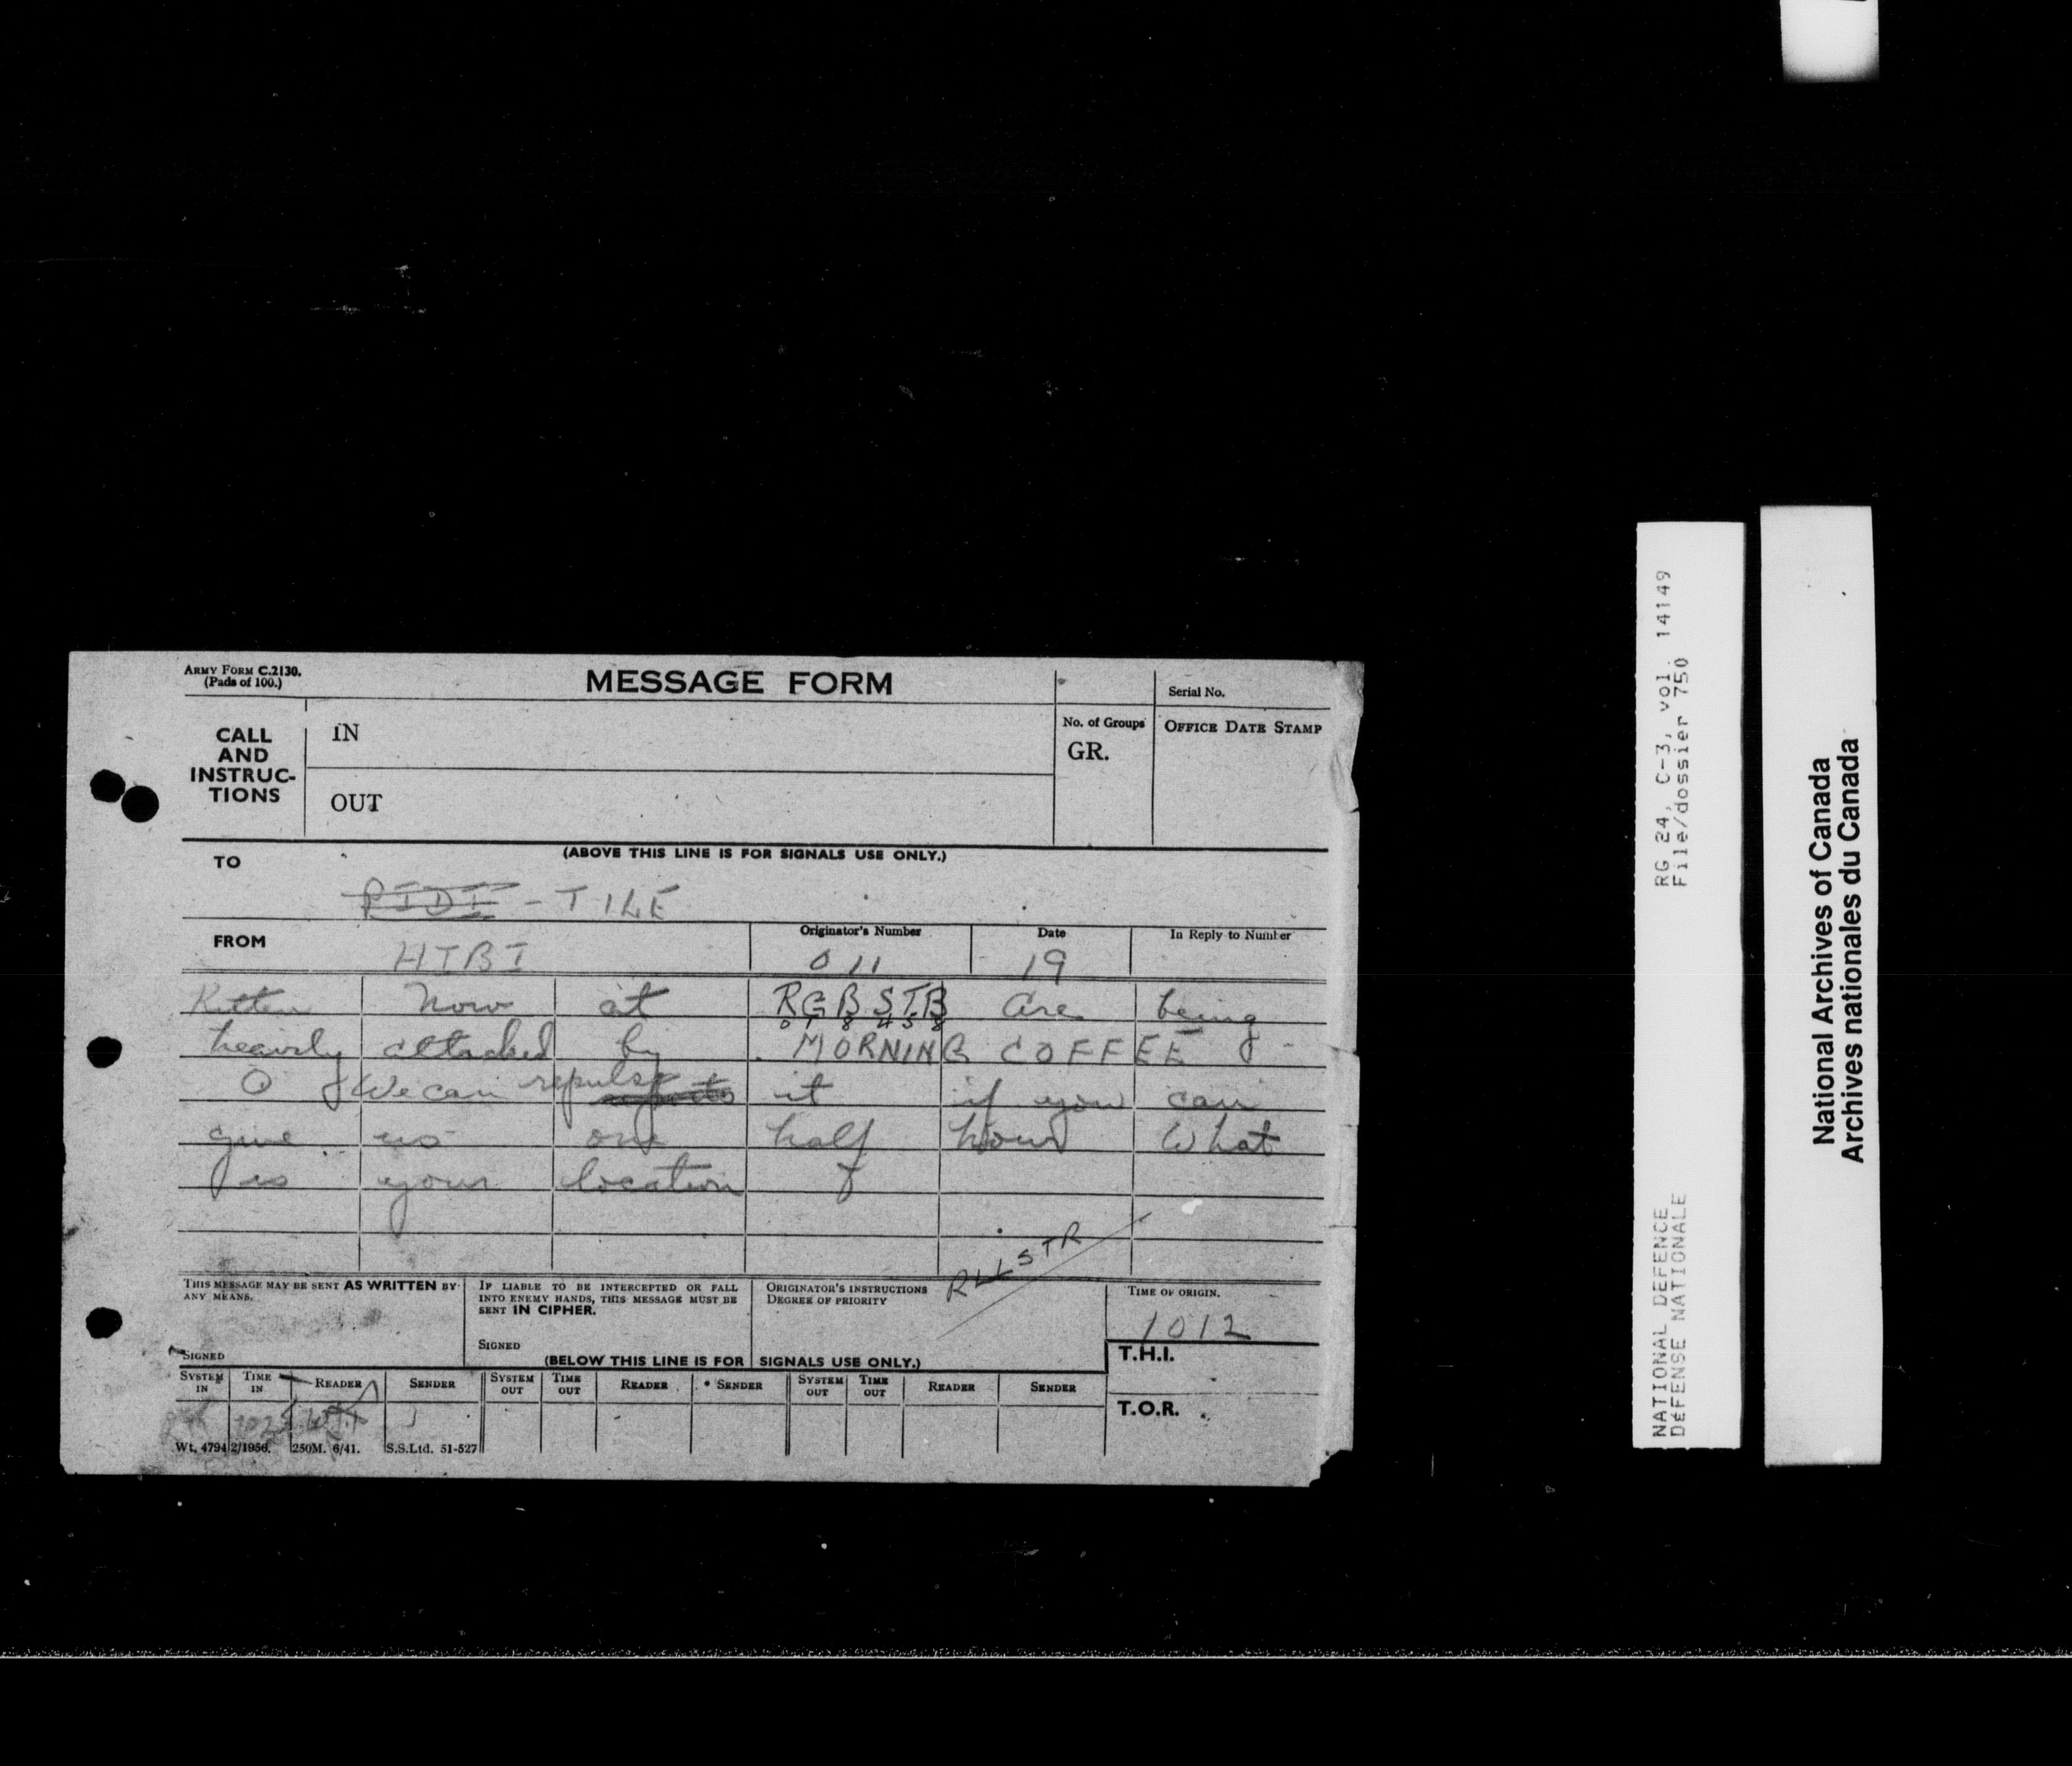 ARMY FORM C.2130.
(Pads of 100.)
MESSAGE FORM
Serial No.
CALL AND INSTRUC-TIONS
IN
No. of Groups
GR.
OFFICE DATE STAMP
OUT
(ABOVE THIS LINE IS FOR SIGNALS USE ONLY.)
TO
PIDI - TILE
FROM
HIBI
Originator's Number
011
Date
19
In Reply to Number
Kitten Now at RGBSTB are being
0 1 8 4 5 8
heavily attacked by MORNING COFFEE
O We can repulse it if you can
give us one half hour What
is your location
RLLSTR
THIS MESSAGE MAY BE SENT AS WRITTEN BY ANY MEANS.
SIGNED
IF LIABLE TO BE INTERCEPTED OR FALL INTO ENEMY HANDS, THIS MESSAGE MUST BE SENT IN CIPHER.
SIGNED
ORIGINATOR'S INSTRUCTIONS
DEGREE OF PRIORITY
TIME OF ORIGIN.
1012
(BELOW THIS LINE IS FOR SIGNALS USE ONLY.)
T.H.I.
SYSTEM IN TIME IN READER SENDER SYSTEM OUT TIME OUT READER SENDER SYSTEM OUT TIME OUT READER SENDER
T.O.R.
Wt. 4794 2/1956. 250M. 6/41. S.S.Ltd. 51-527
RG 24, C-3, vol. 14149
File/dossier 750
NATIONAL DEFENCE
DÉFENSE NATIONALE
National Archives of Canada
Archives nationales du Canada